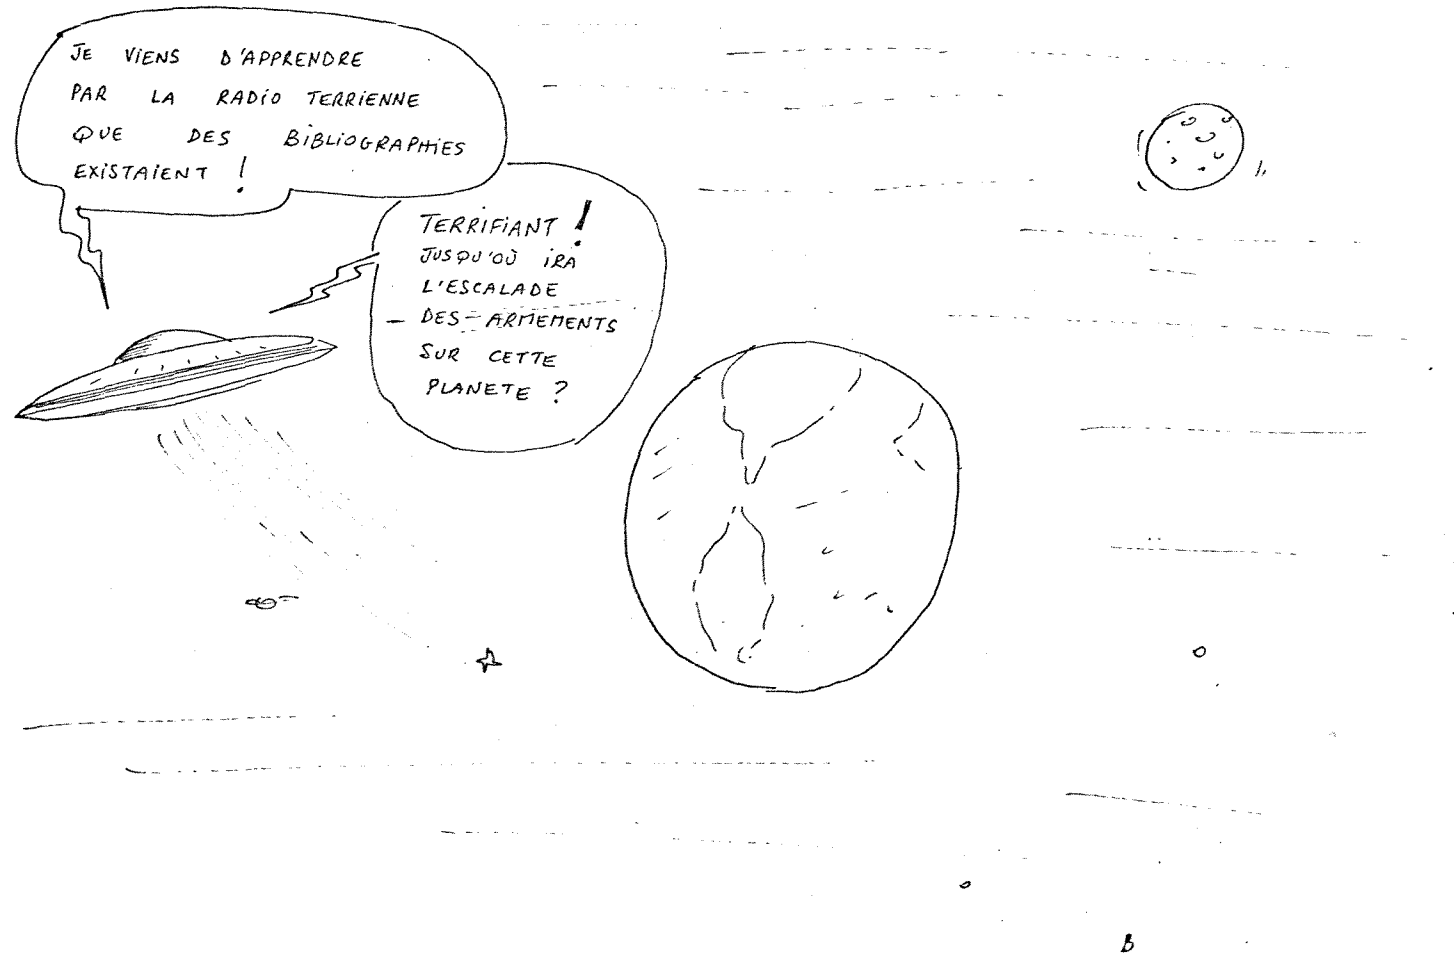 JE VIENS D'APPRENDRE
PAR LA RADIO TERRIENNE
QUE DES BIBLIOGRAPHIES
EXISTAIENT !
TERRIFIANT !
JUSQU'OÙ IRA
L'ESCALADE
DES ARMEMENTS
SUR CETTE
PLANETE ?
B